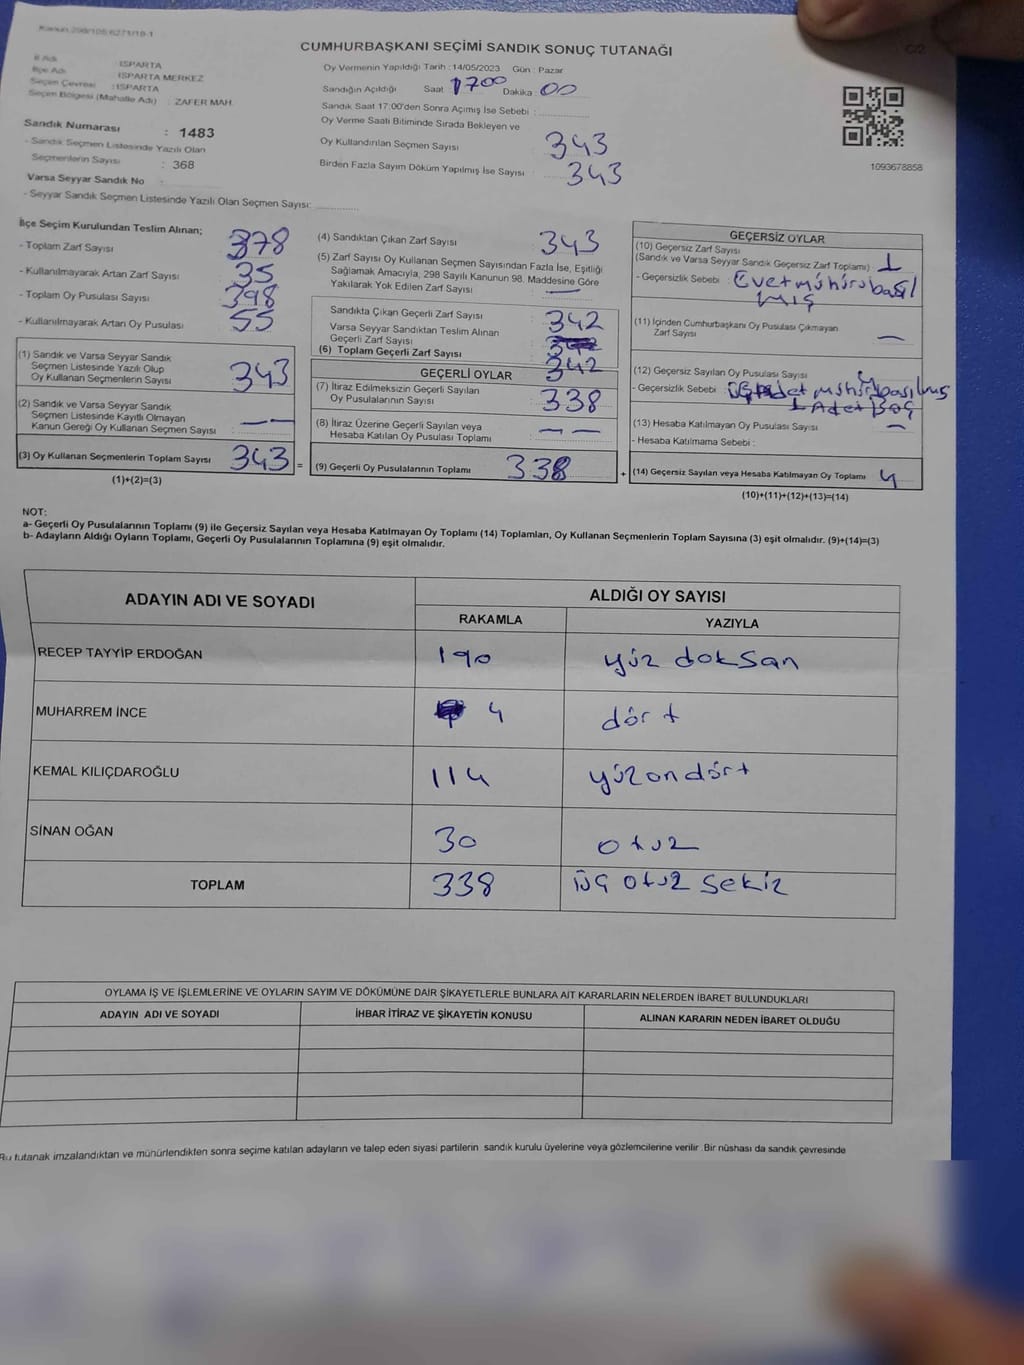 Kanun:298/105/6271/19-1
C/2
CUMHURBAŞKANI SEÇİMİ SANDIK SONUÇ TUTANAĞI
İl Adı : ISPARTA
İlçe Adı : ISPARTA MERKEZ
Seçim Çevresi : ISPARTA
Seçim Bölgesi (Mahalle Adı) : ZAFER MAH.
Sandık Numarası : 1483
- Sandık Seçmen Listesinde Yazılı Olan
Seçmenlerin Sayısı : 368
Varsa Seyyar Sandık No :
- Seyyar Sandık Seçmen Listesinde Yazılı Olan Seçmen Sayısı:
Oy Vermenin Yapıldığı Tarih : 14/05/2023 Gün : Pazar
Sandığın Açıldığı Saat 1700 Dakika : 00
Sandık Saat 17:00'den Sonra Açımış İse Sebebi :
Oy Verme Saati Bitiminde Sırada Bekleyen ve
Oy Kullandırılan Seçmen Sayısı 343
Birden Fazla Sayım Döküm Yapılmış İse Sayısı 343
1093678858
İlçe Seçim Kurulundan Teslim Alınan;
- Toplam Zarf Sayısı 378
- Kullanılmayarak Artan Zarf Sayısı 35
- Toplam Oy Pusulası Sayısı 398
- Kullanılmayarak Artan Oy Pusulası 55
(1) Sandık ve Varsa Seyyar Sandık
Seçmen Listesinde Yazılı Olup
Oy Kullanan Seçmenlerin Sayısı 343
(2) Sandık ve Varsa Seyyar Sandık
Seçmen Listesinde Kayıtlı Olmayan
Kanun Gereği Oy Kullanan Seçmen Sayısı — —
(3) Oy Kullanan Seçmenlerin Toplam Sayısı 343 =
(1)+(2)=(3)
(4) Sandıktan Çıkan Zarf Sayısı 343
(5) Zarf Sayısı Oy Kullanan Seçmen Sayısından Fazla İse, Eşitliği
Sağlamak Amacıyla, 298 Sayılı Kanunun 98. Maddesine Göre
Yakılarak Yok Edilen Zarf Sayısı —
Sandıkta Çıkan Geçerli Zarf Sayısı 342
Varsa Seyyar Sandıktan Teslim Alınan
Geçerli Zarf Sayısı
(6) Toplam Geçerli Zarf Sayısı 342
GEÇERLİ OYLAR
(7) İtiraz Edilmeksizin Geçerli Sayılan
Oy Pusulalarının Sayısı 338
(8) İtiraz Üzerine Geçerli Sayılan veya
Hesaba Katılan Oy Pusulası Toplamı — —
(9) Geçerli Oy Pusulalarının Toplamı 338 +
GEÇERSİZ OYLAR
(10) Geçersiz Zarf Sayısı
(Sandık ve Varsa Seyyar Sandık Geçersiz Zarf Toplamı) : 1
- Geçersizlik Sebebi : Evet mühürü basıl
mış
(11) İçinden Cumhurbaşkanı Oy Pusulası Çıkmayan
Zarf Sayısı —
(12) Geçersiz Sayılan Oy Pusulası Sayısı
- Geçersizlik Sebebi : Adet mühür basılmış
1 Adet Boş
(13) Hesaba Katılmayan Oy Pusulası Sayısı —
- Hesaba Katılmama Sebebi :
(14) Geçersiz Sayılan veya Hesaba Katılmayan Oy Toplamı 4
(10)+(11)+(12)+(13)=(14)
NOT:
a- Geçerli Oy Pusulalarının Toplamı (9) ile Geçersiz Sayılan veya Hesaba Katılmayan Oy Toplamı (14) Toplamları, Oy Kullanan Seçmenlerin Toplam Sayısına (3) eşit olmalıdır. (9)+(14)=(3)
b- Adayların Aldığı Oyların Toplamı, Geçerli Oy Pusulalarının Toplamına (9) eşit olmalıdır.
ADAYIN ADI VE SOYADI ALDIĞI OY SAYISI
RAKAMLA YAZIYLA
RECEP TAYYİP ERDOĞAN 190 yüz doksan
MUHARREM İNCE 4 dört
KEMAL KILIÇDAROĞLU 114 yüzondört
SİNAN OĞAN 30 otuz
TOPLAM 338 üç otuz sekiz
OYLAMA İŞ VE İŞLEMLERİNE VE OYLARIN SAYIM VE DÖKÜMÜNE DAİR ŞİKAYETLERLE BUNLARA AİT KARARLARIN NELERDEN İBARET BULUNDUKLARI
ADAYIN ADI VE SOYADI İHBAR İTİRAZ VE ŞİKAYETİN KONUSU ALINAN KARARIN NEDEN İBARET OLDUĞU
Bu tutanak imzalandıktan ve mühürlendikten sonra seçime katılan adayların ve talep eden siyasi partilerin sandık kurulu üyelerine veya gözlemcilerine verilir. Bir nüshası da sandık çevresinde